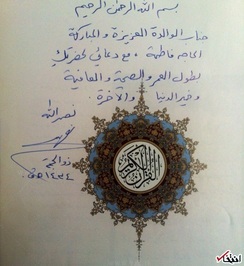 بسم الله الرحمن الرحيم
جناب الوالدة العزيزة و المباركة
الحاجة فاطمة ، مع دعائي لحضرتك
بطول العمر والصحة و العافية
وخير الدنيا والآخرة
نصر الله
ذو الحجة
١٤٣٤ هـ
القرآن الكريم